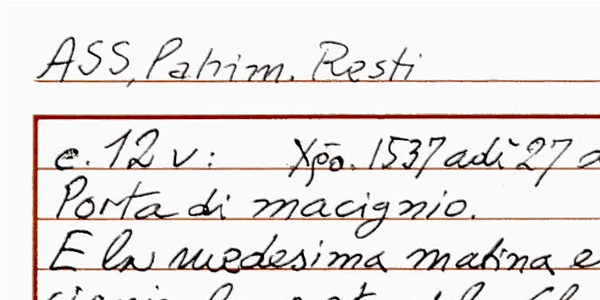 ASS, Patrim. Resti
c. 12 v: Xp̄o. 1537 adì 27
Porta di macignio.
E la medesima matina e